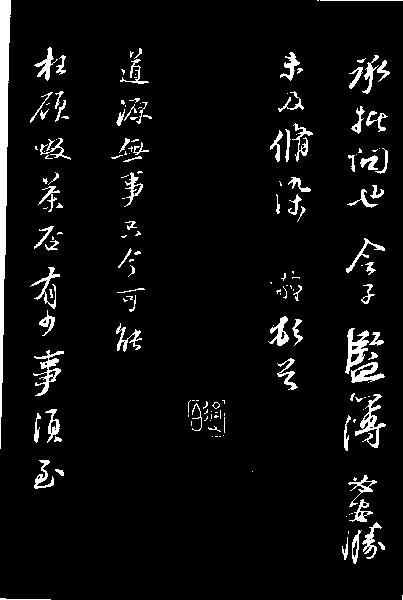 承批問也 令子監簿必安勝
未及脩染 軾頓首
道源無事只今可能
枉顧啜茶否有少事須至